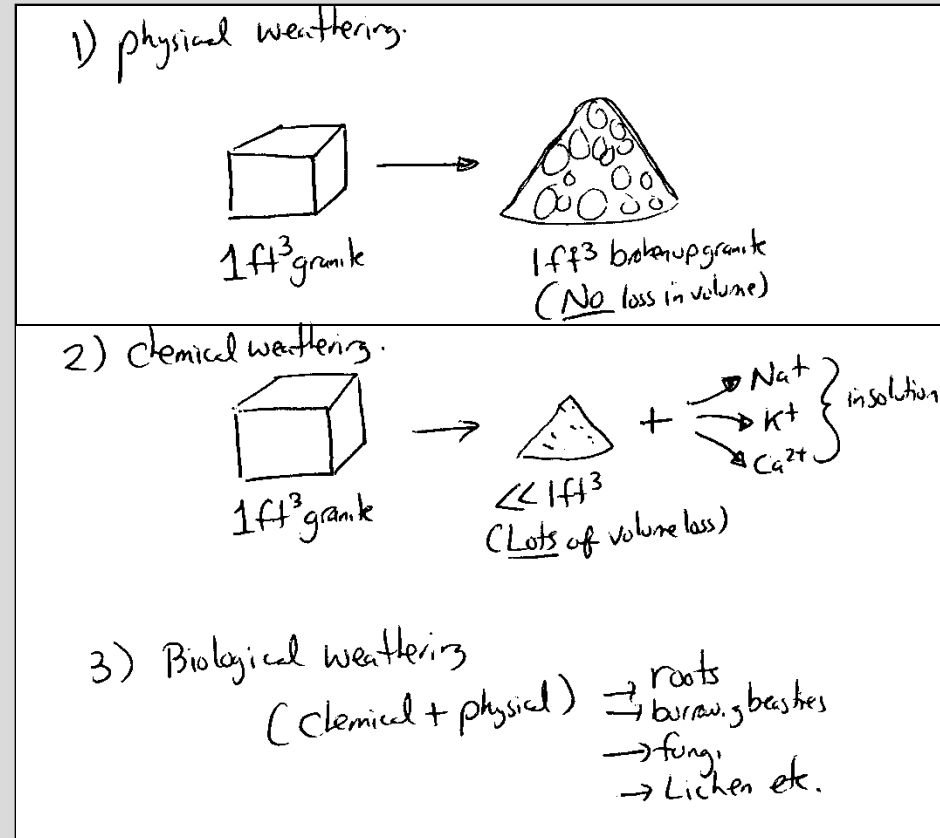 1) physical weathering.
1ft³ granite
1ft³ broken up granite
(No loss in volume)
2) Chemical weathering.
1ft³ granite
<< 1ft³
(Lots of volume loss)
+
Na+
K+
Ca2+
in solution
3) Biological weathering
(Chemical + physical)
→ roots
→ burrowing beasties
→ fungi
→ Lichen etc.